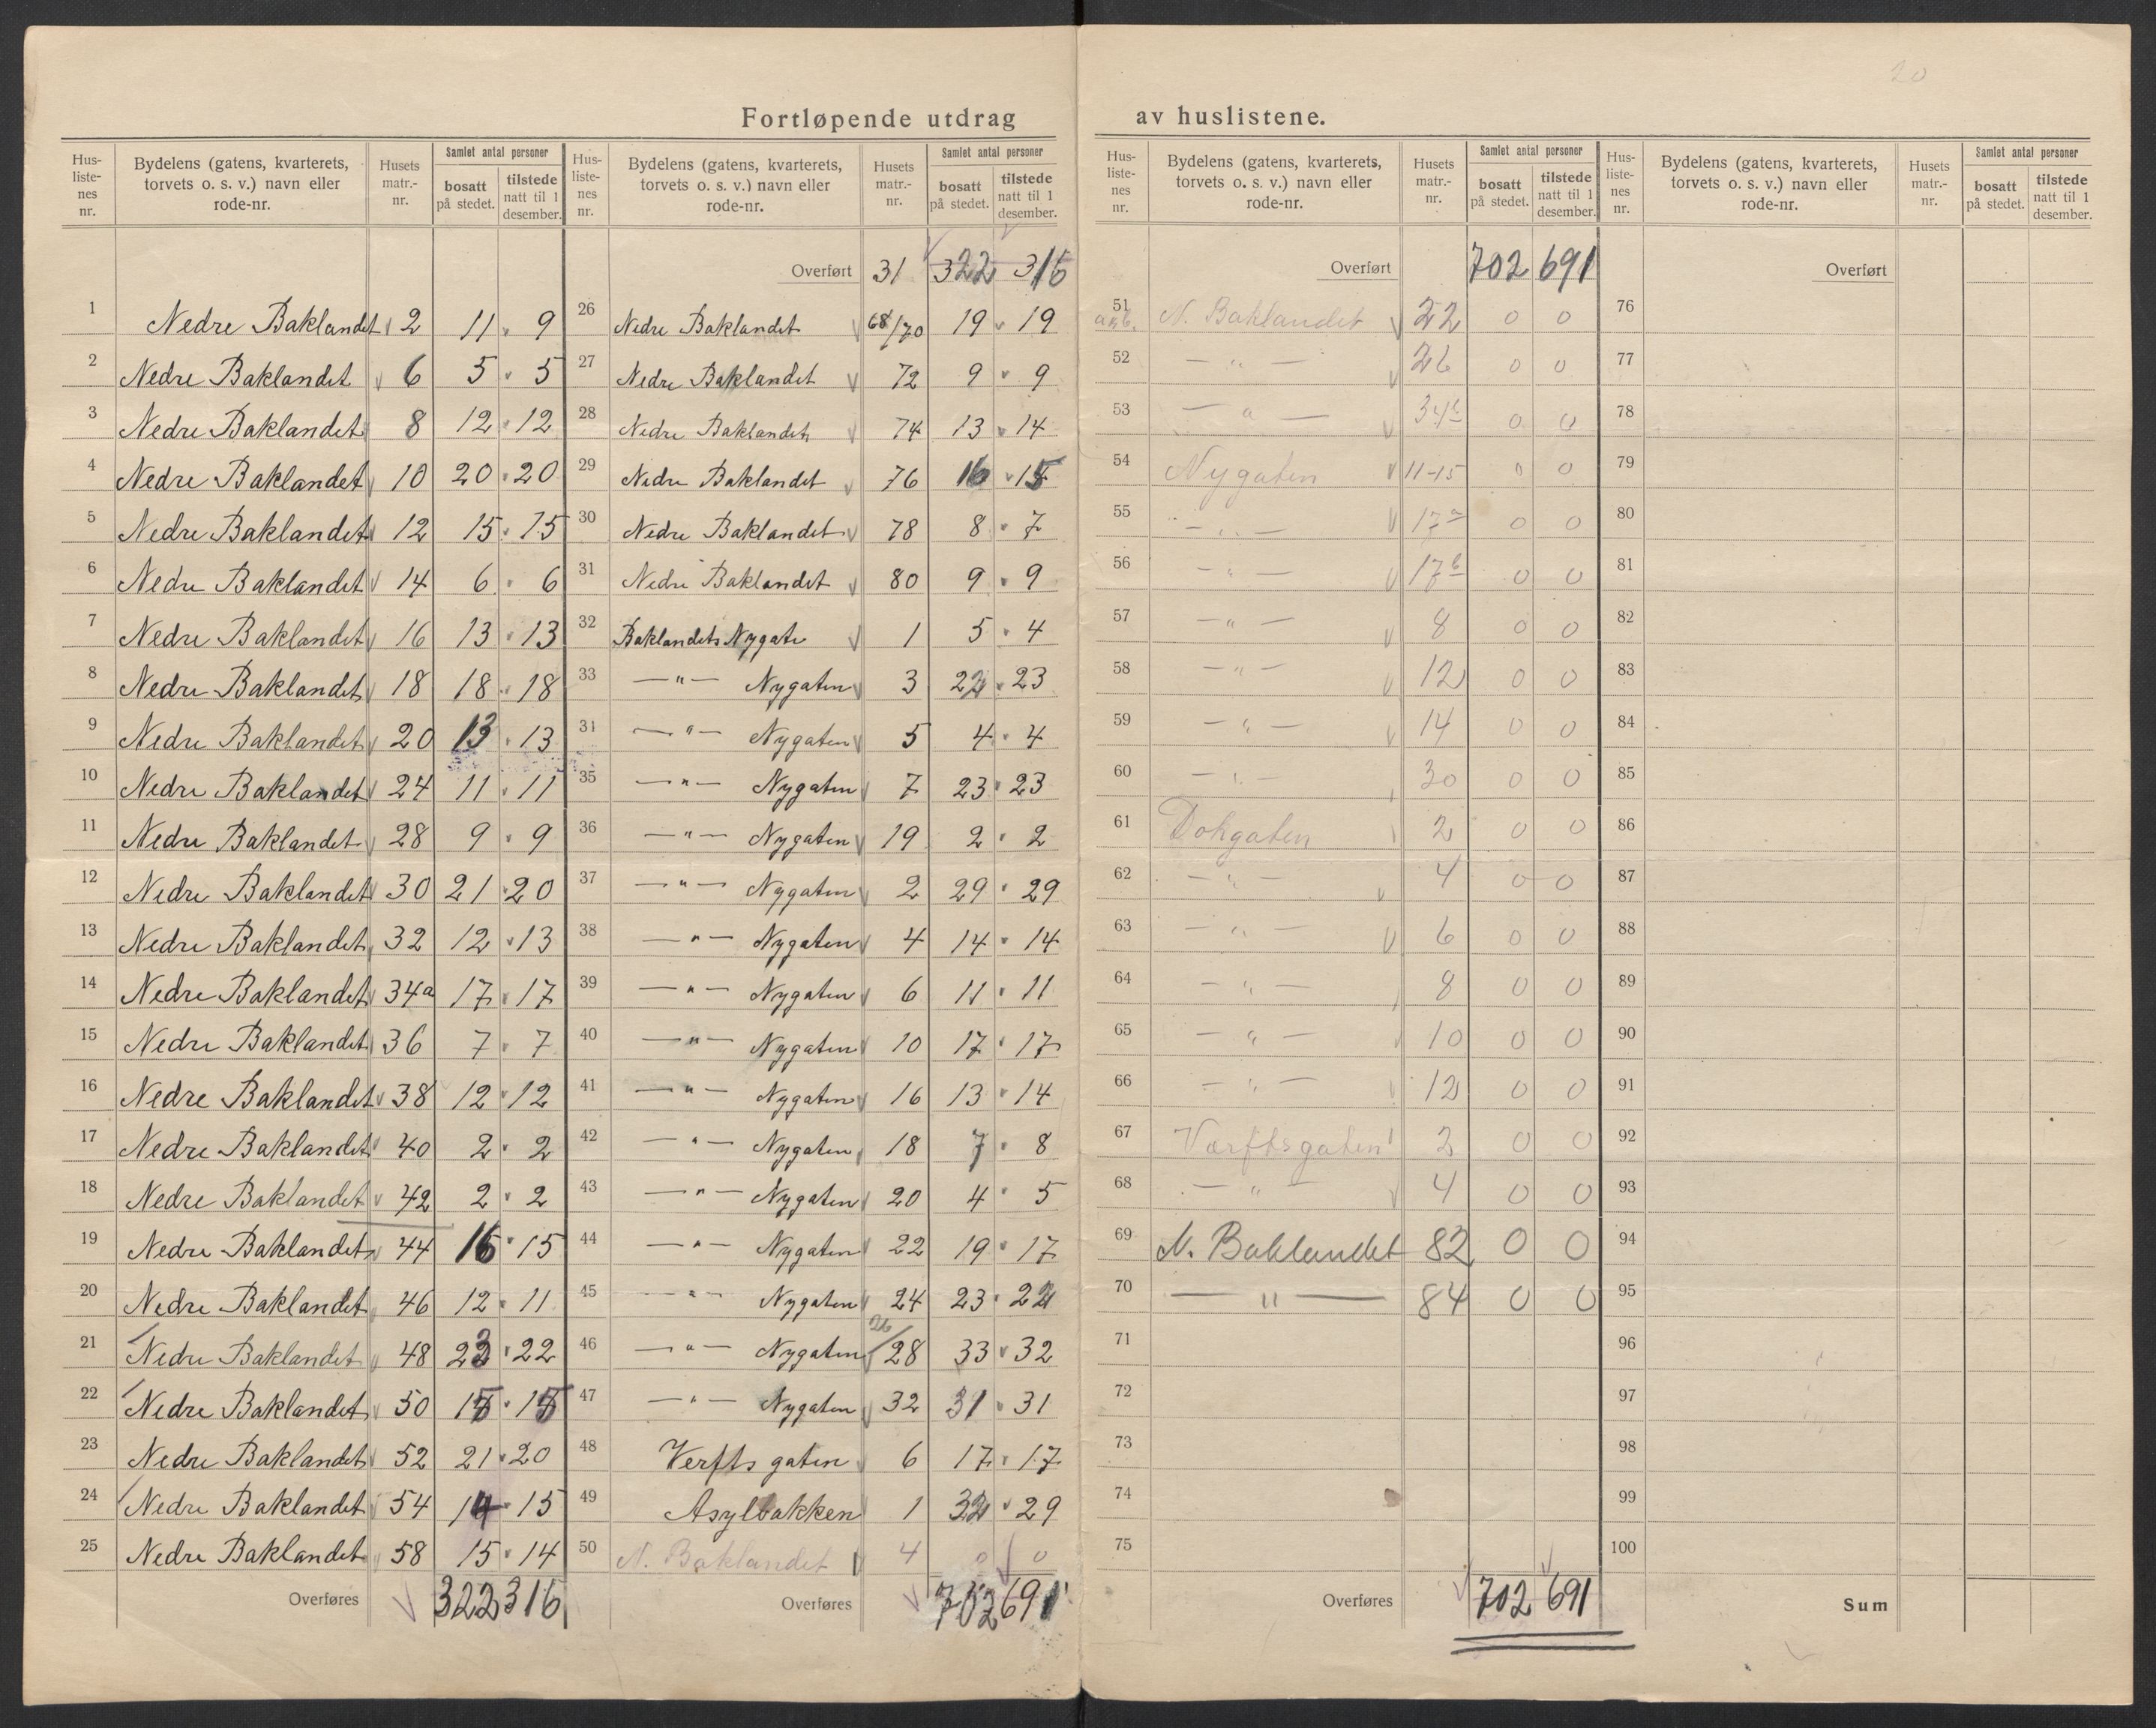 20
Fortløpende utdrag av huslistene.
Hus-listenes nr. Bydelens (gatens, kvarterets, torvets o. s. v.) navn eller rode-nr. Husets matr.-nr. Samlet antal personer bosatt på stedet. tilstede natt til 1 desember.
1 Nedre Baklandet 2 11 9
2 Nedre Baklandet 6 5 5
3 Nedre Baklandet 8 12 12
4 Nedre Baklandet 10 20 20
5 Nedre Baklandet 12 15 15
6 Nedre Baklandet 14 6 6
7 Nedre Baklandet 16 13 13
8 Nedre Baklandet 18 18 18
9 Nedre Baklandet 20 13 13
10 Nedre Baklandet 24 11 11
11 Nedre Baklandet 28 9 9
12 Nedre Baklandet 30 21 20
13 Nedre Baklandet 32 12 13
14 Nedre Baklandet 34a 17 17
15 Nedre Baklandet 36 7 7
16 Nedre Baklandet 38 12 12
17 Nedre Baklandet 40 2 2
18 Nedre Baklandet 42 2 2
19 Nedre Baklandet 44 16 15
20 Nedre Baklandet 46 12 11
21 Nedre Baklandet 48 23 22
22 Nedre Baklandet 50
23 Nedre Baklandet 52 21 20
24 Nedre Baklandet 54 14 15
25 Nedre Baklandet 58 15 14
Overføres 322 316
Hus-listenes nr. Bydelens (gatens, kvarterets, torvets o. s. v.) navn eller rode-nr. Husets matr.-nr. Samlet antal personer bosatt på stedet. tilstede natt til 1 desember.
Overført 31 322 316
26 Nedre Baklandet 68/70 19 19
27 Nedre Baklandet 72 9 9
28 Nedre Baklandet 74 13 14
29 Nedre Baklandet 76 16 15
30 Nedre Baklandet 78 8 7
31 Nedre Baklandet 80 9 9
32 Baklandets Nygate 1 5 4
33 — " — Nygaten 3 22 23
34 — " — Nygaten 5 4 4
35 — " — Nygaten 7 23 23
36 — " — Nygaten 19 2 2
37 — " — Nygaten 2 29 29
38 — " — Nygaten 4 14 14
39 — " — Nygaten 6 11 11
40 — " — Nygaten 10 17 17
41 — " — Nygaten 16 13 14
42 — " — Nygaten 18 7 8
43 — " — Nygaten 20 4 5
44 — " — Nygaten 22 19 17
45 — " — Nygaten 24 23 22
46 — " — Nygaten 26/28 33 32
47 — " — Nygaten 32 31 31
48 Verfts gaten 6 17 17
49 Asylbakken 1 32 29
50 N. Baklandet 4 0 0
Overføres 702 691
Hus-listenes nr. Bydelens (gatens, kvarterets, torvets o. s. v.) navn eller rode-nr. Husets matr.-nr. Samlet antal personer bosatt på stedet. tilstede natt til 1 desember.
Overført 702 691
51 N. Baklandet 22 0 0
52 — " — 26 0 0
53 — " — 34b 0 0
54 Nygaten 11-15 0 0
55 — " — 17a 0 0
56 — " — 17b 0 0
57 — " — 8 0 0
58 — " — 12 0 0
59 — " — 14 0 0
60 — " — 30 0 0
61 Dokgaten 2 0 0
62 — " — 4 0 0
63 — " — 6 0 0
64 — " — 8 0 0
65 — " — 10 0 0
66 — " — 12 0 0
67 Værftsgaten 2 0 0
68 — " — 4 0 0
69 N. Baklandet 82 0 0
70 — " — 84 0 0
71
72
73
74
75
Overføres 702 691
Hus-listenes nr. Bydelens (gatens, kvarterets, torvets o. s. v.) navn eller rode-nr. Husets matr.-nr. Samlet antal personer bosatt på stedet. tilstede natt til 1 desember.
Overført
76
77
78
79
80
81
82
83
84
85
86
87
88
89
90
91
92
93
94
95
96
97
98
99
100
Sum